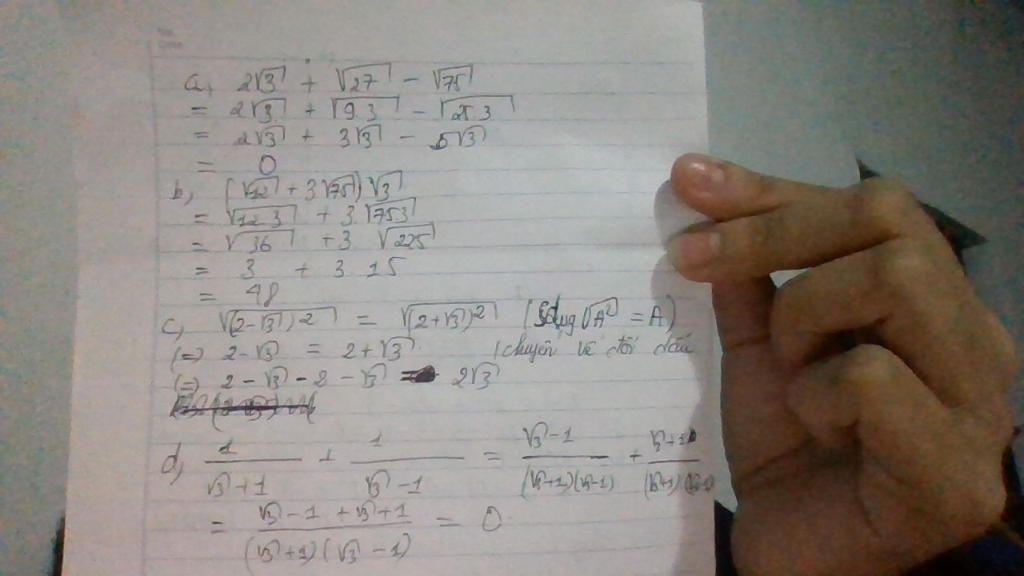 a, 2√3 + √27 − √75
= 2√3 + √9.3 − √25.3
= 2√3 + 3√3 − 5√3
= 0
b, (√12 + 3√75)√3
= √12.3 + 3√75.3
= √36 + 3 √225
= 3 + 3.15
= 48
c, √(2-√3)² = √(2+√3)² (Sd √A² = A)
(=) 2-√3 = 2+√3 (chuyển vế đổi dấu
(=) 2 - √3 - 2 - √3 = 2√3
d, 1/(√3+1) + 1/(√3-1) = (√3-1)/((√3+1)(√3-1)) + (√3+1)/((√3+1)(√3-1))
= (√3-1+√3+1)/((√3+1)(√3-1)) = 0